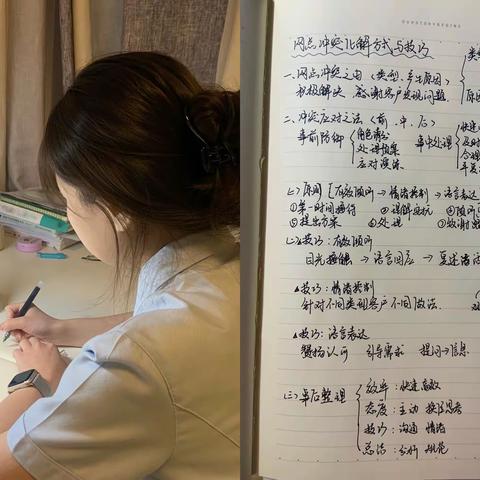 网点冲突化解方式与技巧
一、网点冲突之由（类型、产生原因）
积极解决 感谢客户发现问题.
类
原因
二、冲突应对之法（前、中、后）
事前防御 角色演分
处理预案
应对演练
事中处理
快速
及时
合理
(二) 原则 有效倾听 → 情绪控制 → 语言表达
①第一时间接待 ②误解 ③倾听
⑤提出方案 ⑥处理 ⑦致谢
(二)技巧：有效倾听
目光接触 → 语言回应 → 复述
▲技巧：情绪控制
针对不同类型客户不同做法.
▲技巧：语言表达
赞扬认可 引导需求 提问→信息
(三)事后整理
效率：快速 高效
态度：主动 换位思考
技巧：沟通 情绪
总结：分析 规范